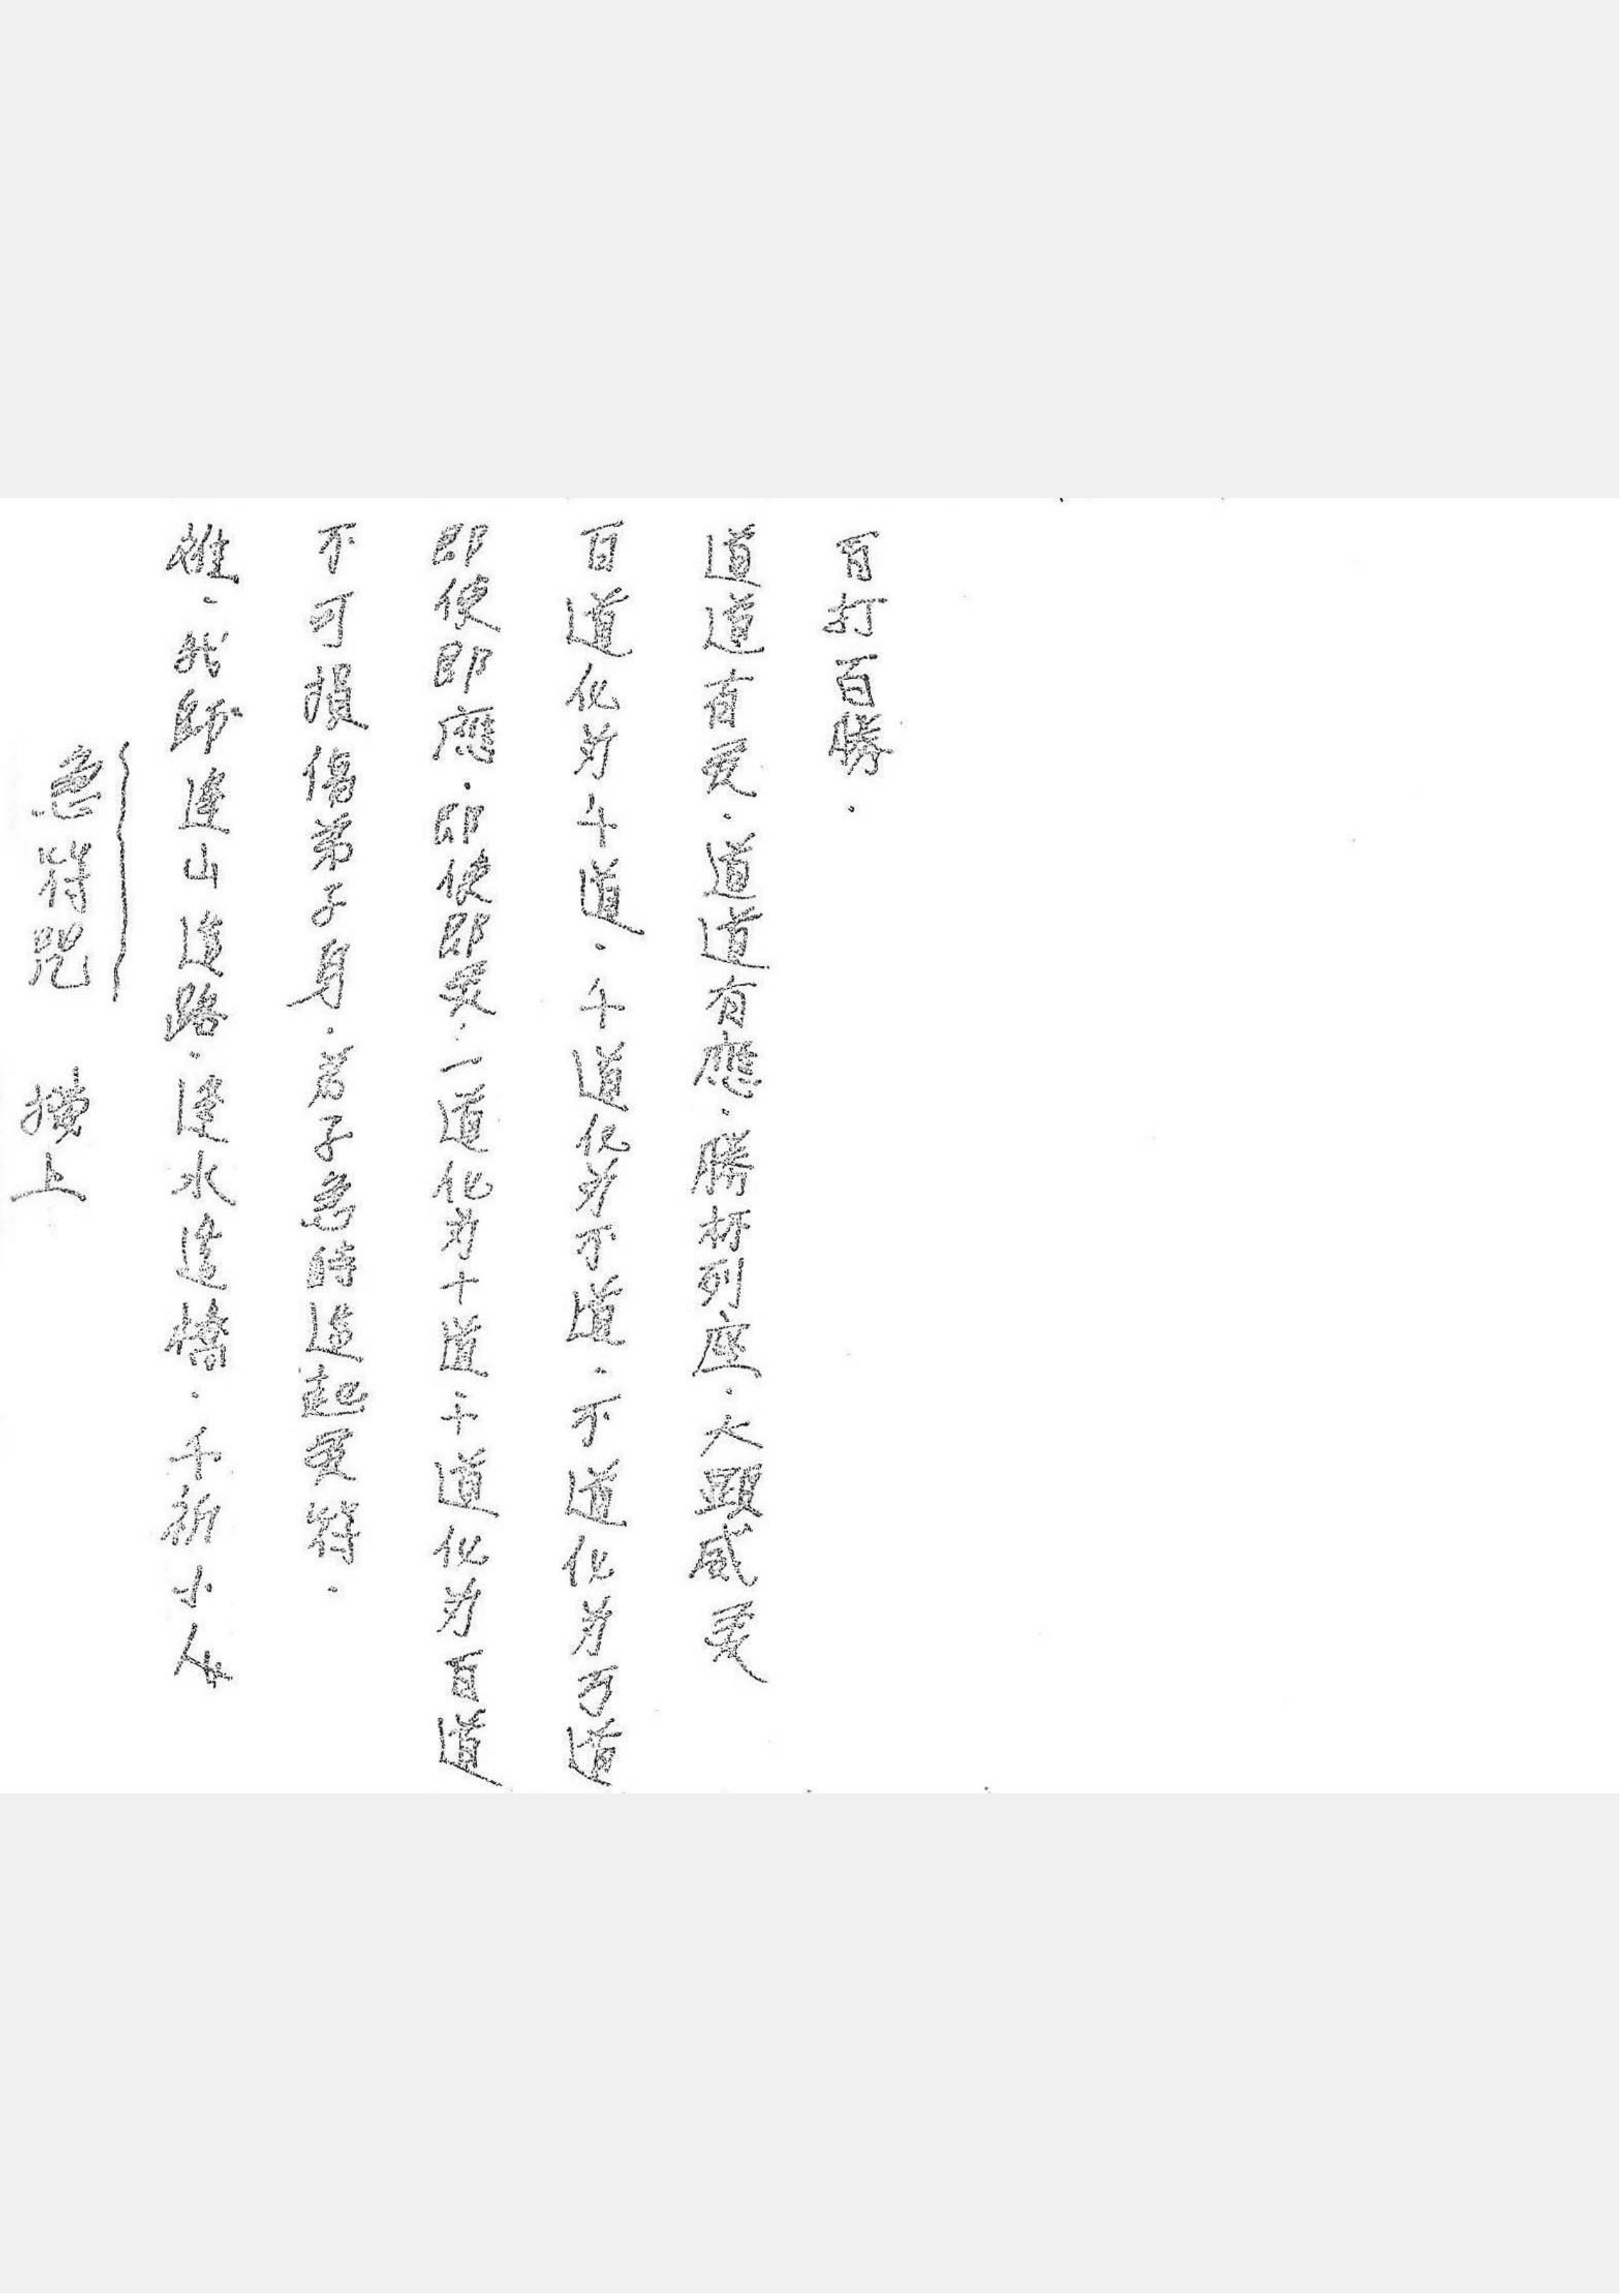 急符咒 續上
雄.我師逢山造路.逢水造橋.千祈小
不可損傷弟子身.弟子急時造起灵符.
即使即應.即使即灵.一道化为十道.十道化为百道
百道化为千道.千道化为不道.不道化为万道
道道有灵.道道有應.勝杯列座.大顯威灵
百打百勝.